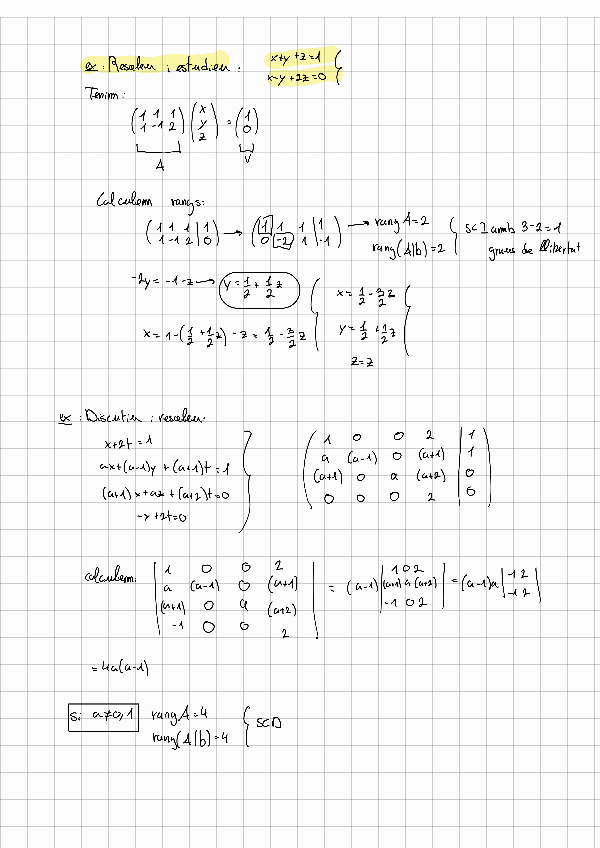 ex: Resoleu i estudieu: x+y+z=1
x-y+2z=0
Tenim:
(1 1 1 / 1 -1 2) (x / y / z) = (1 / 0)
A V
Calculem rangs:
(1 1 1 | 1 / 1 -1 2 | 0) → (1 1 1 | 1 / 0 -2 1 | -1) → rang A=2
rang(A|b)=2 { SCI amb 3-2=1
graus de llibertat
-2y = -1-z → y = 1/2 + 1/2 z
x = 1-(1/2 + 1/2 z) - z = 1/2 - 3/2 z
x = 1/2 - 3/2 z
y = 1/2 + 1/2 z
z=z
ex: Discutiu i resoleu:
x+2t=1
ax+(a-1)y+(a+1)t=1
(a+1)x+az+(a+2)t=0
-x+2t=0
1 0 0 2 | 1
a (a-1) 0 (a+1) | 1
(a+1) 0 a (a+2) | 0
0 0 0 2 | 0
calculem:
1 0 0 2
a (a-1) 0 (a+1)
(a+1) 0 a (a+2)
-1 0 0 2
= (a-1) |1 0 2 / (a+1) a (a+2) / -1 0 2| = (a-1)a |1 2 / -1 2|
= 4a(a-1)
Si a≠0,1 rang A=4
rang(A|b)=4 { SCD